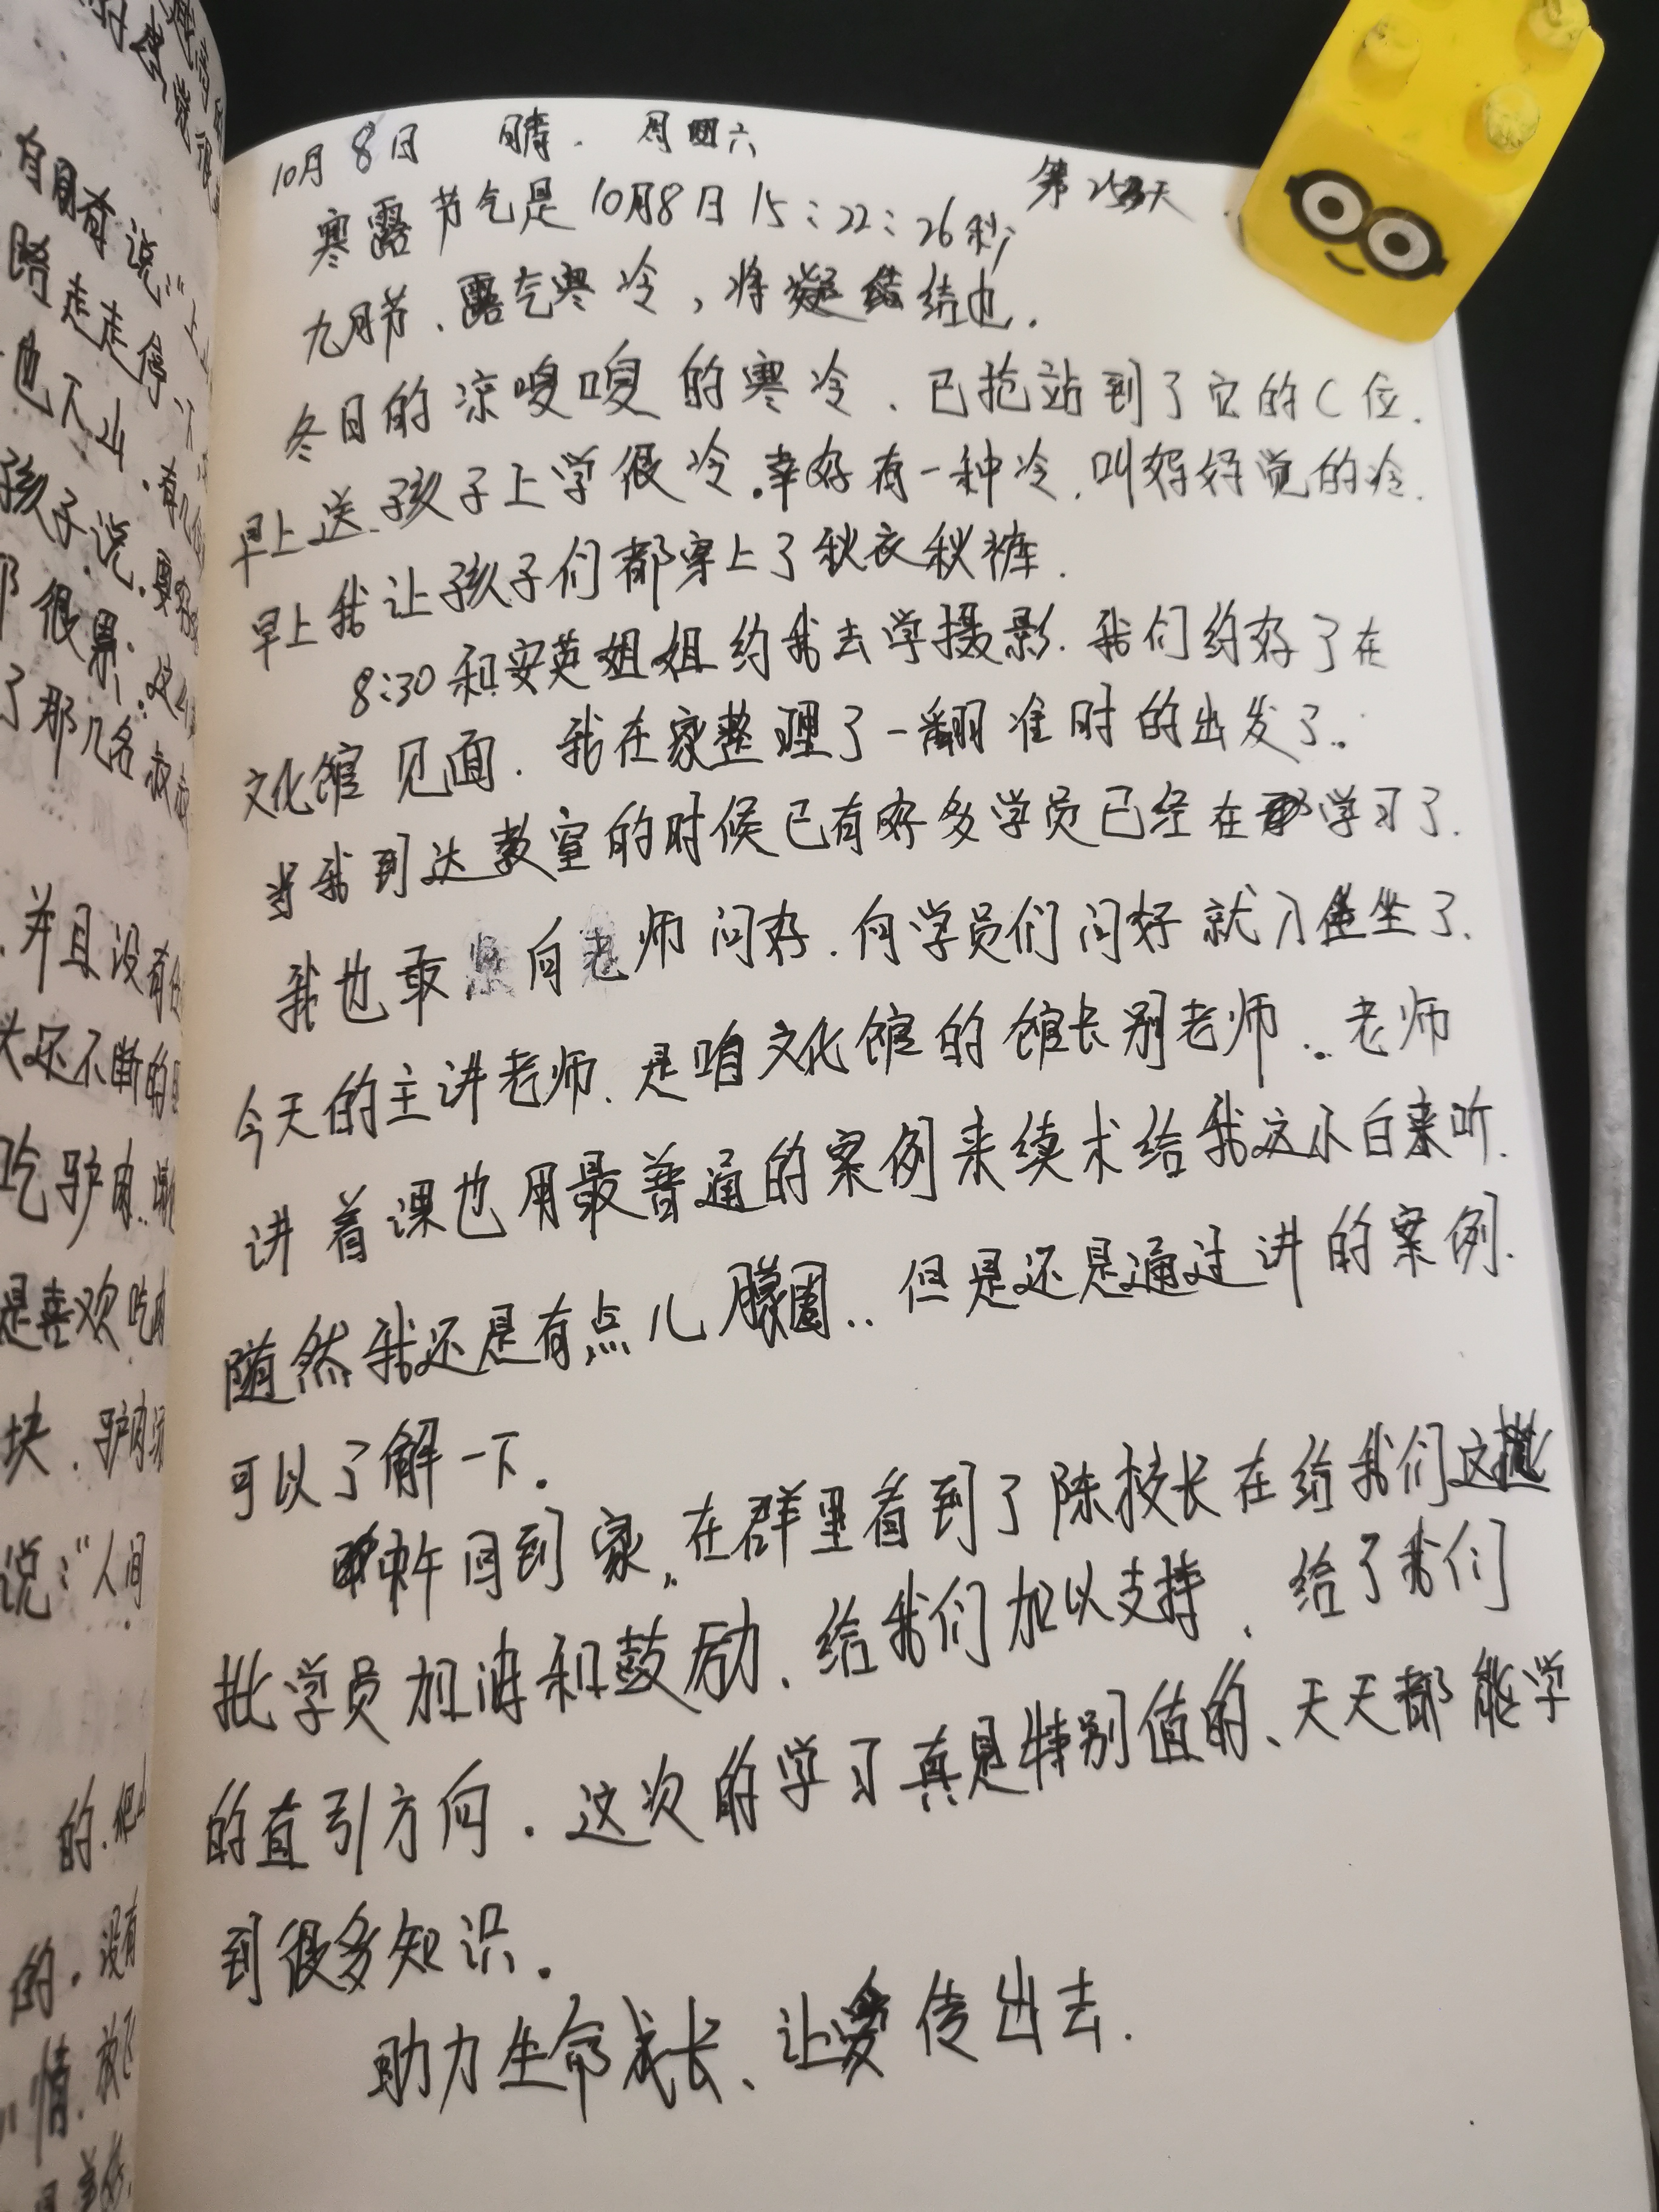 10月8日 晴. 周六
第253天
寒露节气是10月8日15:22:26秒,
九月节、露气寒冷,将凝结也.
冬日的凉嗖嗖的寒冷、已抢站到了它的C位.
早上送孩子上学很冷.幸好有一种冷,叫好好觉的冷.
早上我让孩子们都穿上了秋衣秋裤.
8:30和安英姐姐约我去学摄影.我们约好了在
文化馆见面.我在家整理了一翻准时的出发了.
当我到达教室的时候已有好多学员已经在学习了.
我也敢紧向老师问好.向学员们问好就入坐了.
今天的主讲老师.是咱文化馆的馆长别老师..老师
讲着课也用最普通的案例来续术给我这小白来听.
随然我还是有点儿朦圈..但是还是通过讲的案例.
可以了解一下.
中午回到家,.在群里看到了陈校长在给我们这
批学员加油和鼓励、给我们加以支持、给了我们
的直引方向.这次的学习真是特别值的、天天都能学
到很多知识.
助力生命成长、让爱传出去.
自周有说:"上
路走走停
也下山.有几
孩子说.要
很累.这
了那几名叔
并且没有
还不断的
吃驴肉.
是喜欢吃
块.驴肉
说:"人间
的.
的.没有
情.